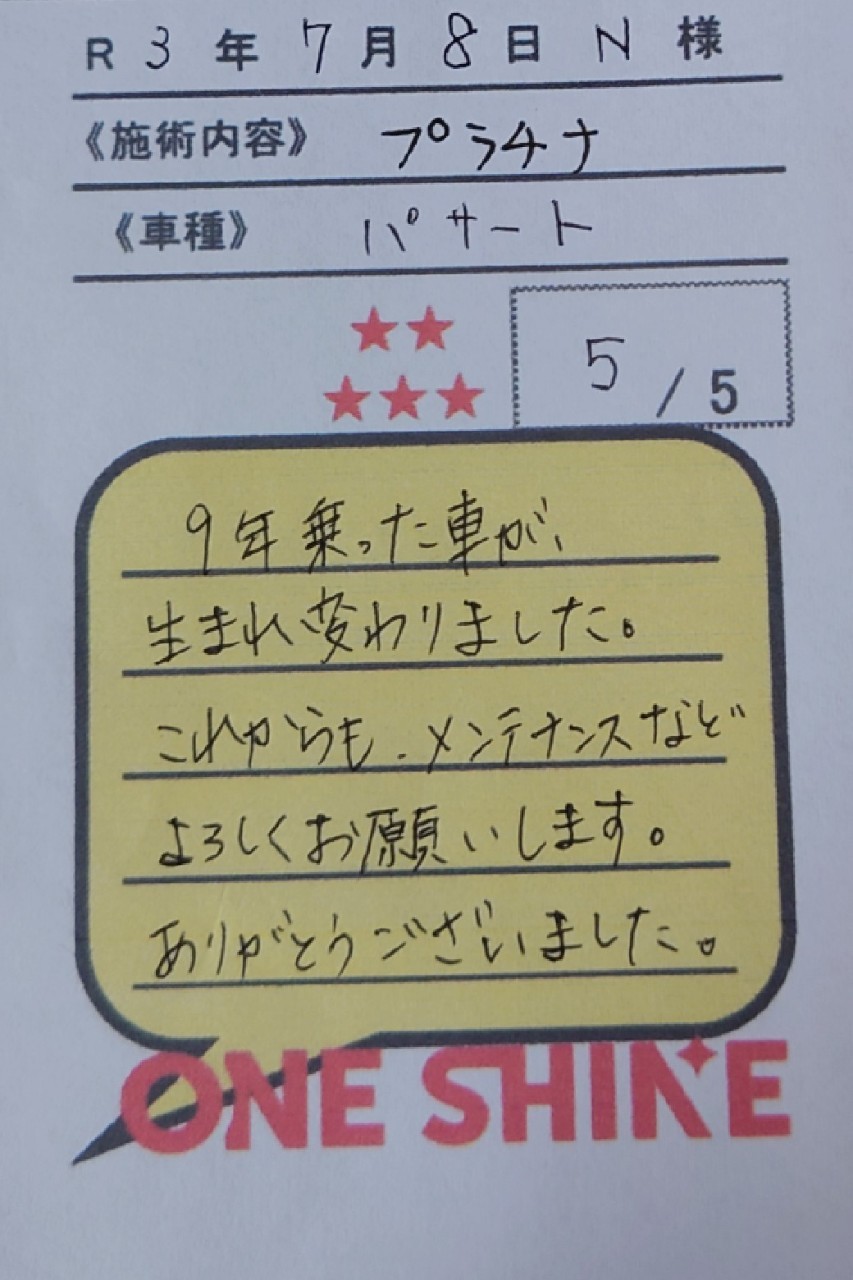 R 3 年 7 月 8 日 N 様
《施術内容》 プラチナ
《車種》 パサート
5 / 5
9年乗った車が、
生まれ変わりました。
これからも、メンテナンスなど
よろしくお願いします。
ありがとうございました。
ONE SHINE